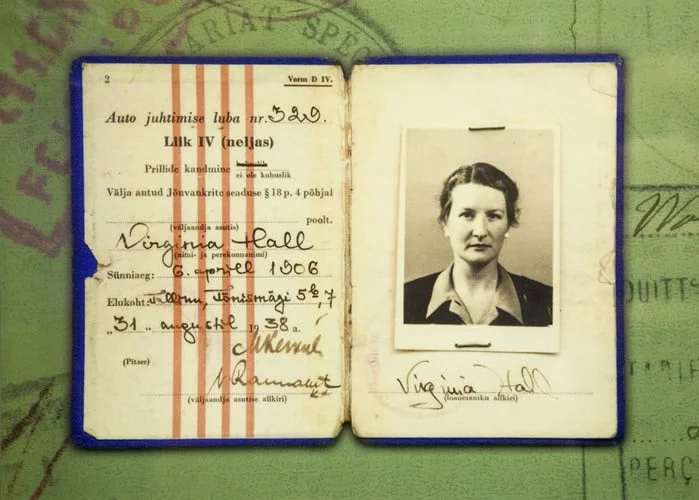 ARIAT SPEC
2
Vorm D IV.
Auto juhtimise luba nr. 329.
Liik IV (neljas)
Prillide kandmine kohuslik
ei ole kohuslik
Välja antud Jõuvankrite seaduse § 18 p. 4 põhjal
poolt.
(väljaandja asutis)
Virginia Hall
(nimi- ja perekonnanimi)
Sünniaeg: 6. aprill 1906
Elukoht: Tallinn, Tõnismägi 5
„31„ augustil 1938 a.
(Pitser)
(väljaandja asutise allkiri)
Virginia Hall
(loaomaniku allkiri)
QUITT
TARIF
PERÇ